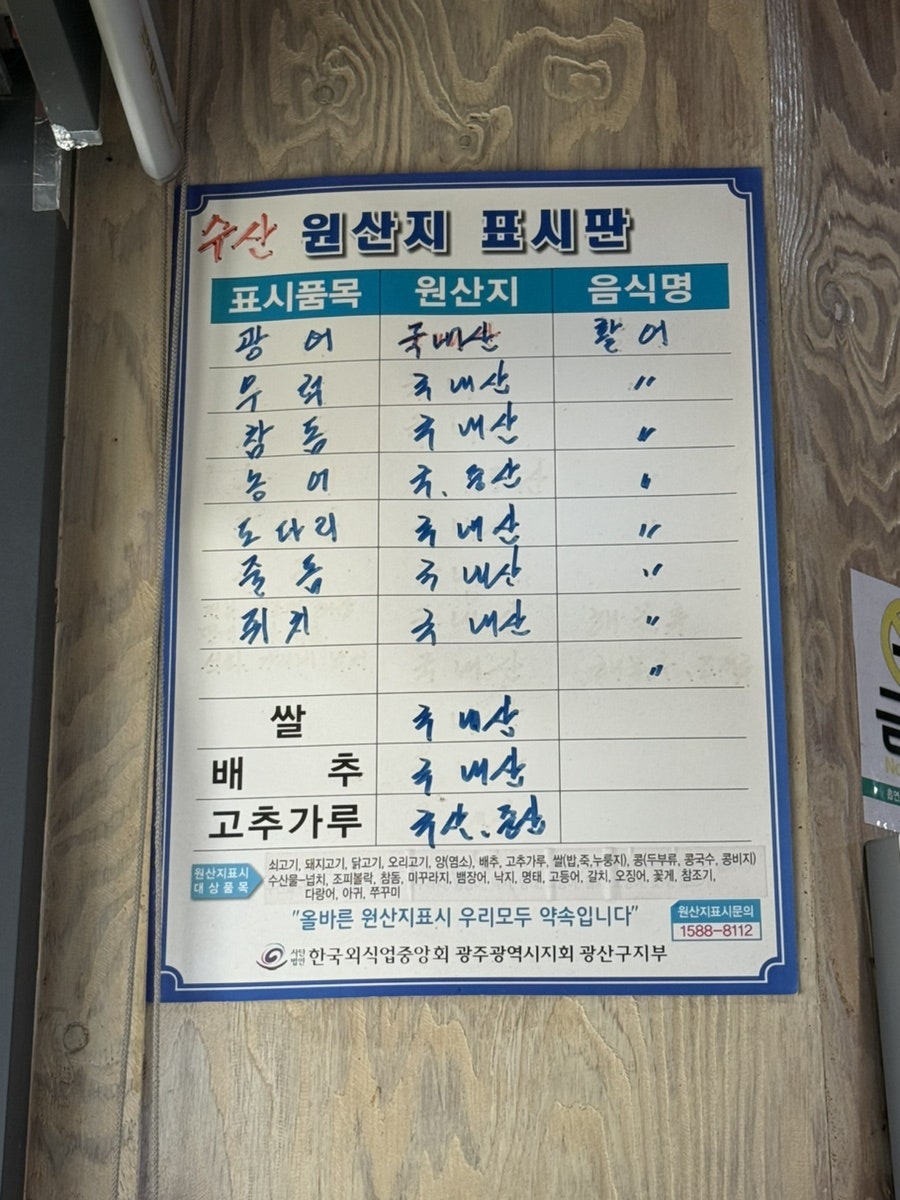 수산 원산지 표시판
표시품목 원산지 음식명
광어 국내산 활어
우럭 국내산 〃
참돔 국내산 〃
농어 국.중산 〃
도다리 국내산 〃
줄돔 국내산 〃
쥐치 국내산 〃
〃
쌀 국내산
배추 국내산
고추가루 국산.중산
원산지표시 대상품목
쇠고기, 돼지고기, 닭고기, 오리고기, 양(염소), 배추, 고추가루, 쌀(밥,죽,누룽지), 콩(두부류, 콩국수, 콩비지)
수산물-넙치, 조피볼락, 참돔, 미꾸라지, 뱀장어, 낙지, 명태, 고등어, 갈치, 오징어, 꽃게, 참조기,
다랑어, 아귀, 쭈꾸미
"올바른 원산지표시 우리모두 약속입니다"
원산지표시문의
1588-8112
사단법인 한국외식업중앙회 광주광역시지회 광산구지부